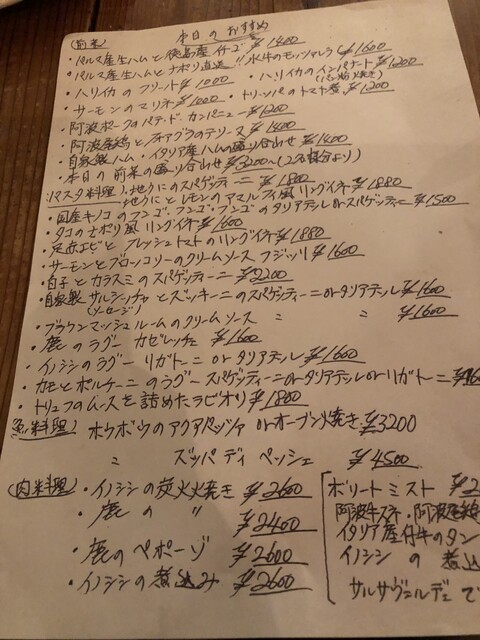 本日のおすすめ
(前菜)
・パルマ産生ハムと徳島産イチゴ ¥1400
・パルマ産生ハムとナポリ直送!!水牛のモッツァレラ ¥1600
・ハリイカのフリット ¥1000 ・ハリイカのインパナート ¥1200
(パン粉焼き)
・サーモンのマリネ ¥1000 ・トリッパのトマト煮 ¥1200
・阿波ポークのパテ・ド・カンパーニュ ¥1200
・阿波尾鶏とフォアグラのテリーヌ ¥1400
・自家製ハム・イタリア産ハムの盛り合わせ ¥1400
・本日の前菜の盛り合わせ ¥3200~(2名様分より)
(パスタ料理)・地うにのスパゲッティーニ ¥1800
・地うにとレモンのアマルフィ風リングイネ ¥1880
・国産キノコのフンゴ・フンゴ・フンゴのタリアテッレorスパゲティーニ ¥1500
・タコのナポリ風リングイネ ¥1600
・足赤エビとフレッシュトマトのリングイネ ¥1880
・サーモンとブロッコリーのクリームソース フジッリ ¥1600
・白子とカラスミのスパゲッティーニ ¥2200
・自家製サルシッチャとズッキーニのスパゲッティーニorタリアテッレ ¥1600
(ソーセージ)
・ブラウンマッシュルームのクリームソース 〃 〃 ¥1600
・鹿のラグー カゼレッチェ ¥1600
・イノシシのラグー リガトーニorタリアテッレ ¥1600
・カモとポルチーニのラグースパゲッティーニorタリアテッレorリガトーニ
・トリュフのムースを詰めたラビオリ ¥1800
(魚料理) ホウボウのアクアパッツァ orオーブン焼き ¥3200
〃 ズッパ ディ ペッシェ ¥4500
(肉料理)・イノシシの炭火焼き ¥2600
・鹿の 〃 ¥2400
・鹿のペポーゾ ¥2600
・イノシシの煮込み ¥2600
ボリートミスト
阿波牛スネ・阿波尾鶏
イタリア産仔牛のタン
イノシシの煮込
サルサヴェルデで